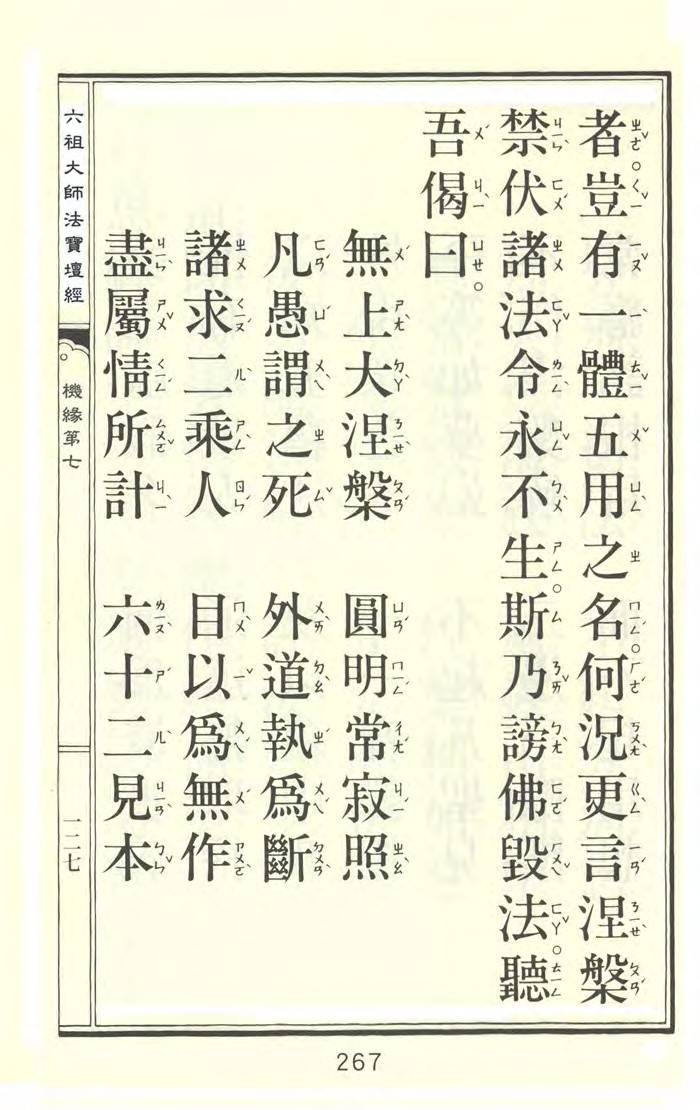 者。豈有一體五用之名。何況更言涅槃
禁伏諸法。令永不生。斯乃謗佛毀法。聽
吾偈曰。
無上大涅槃 圓明常寂照
凡愚謂之死 外道執為斷
諸求二乘人 目以為無作
盡屬情所計 六十二見本
六祖大師法寶壇經
機緣第七
一二七
267